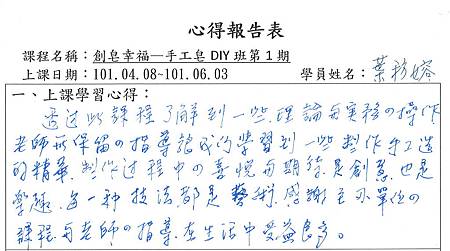 心得報告表
課程名稱：創皂幸福—手工皂DIY班第1期
上課日期：101.04.08~101.06.03
學員姓名：葉
一、上課學習心得：
透過此課程了解到一些理論與實務の操作
老師所保留の指導讓我們學習到一些製作手工皂
的精華,製作过程中の喜悅与期待,是創意,也是
學,每一种技法都是藝術,感謝主办單位の
課程与老師の指導,在生活中受益良多。